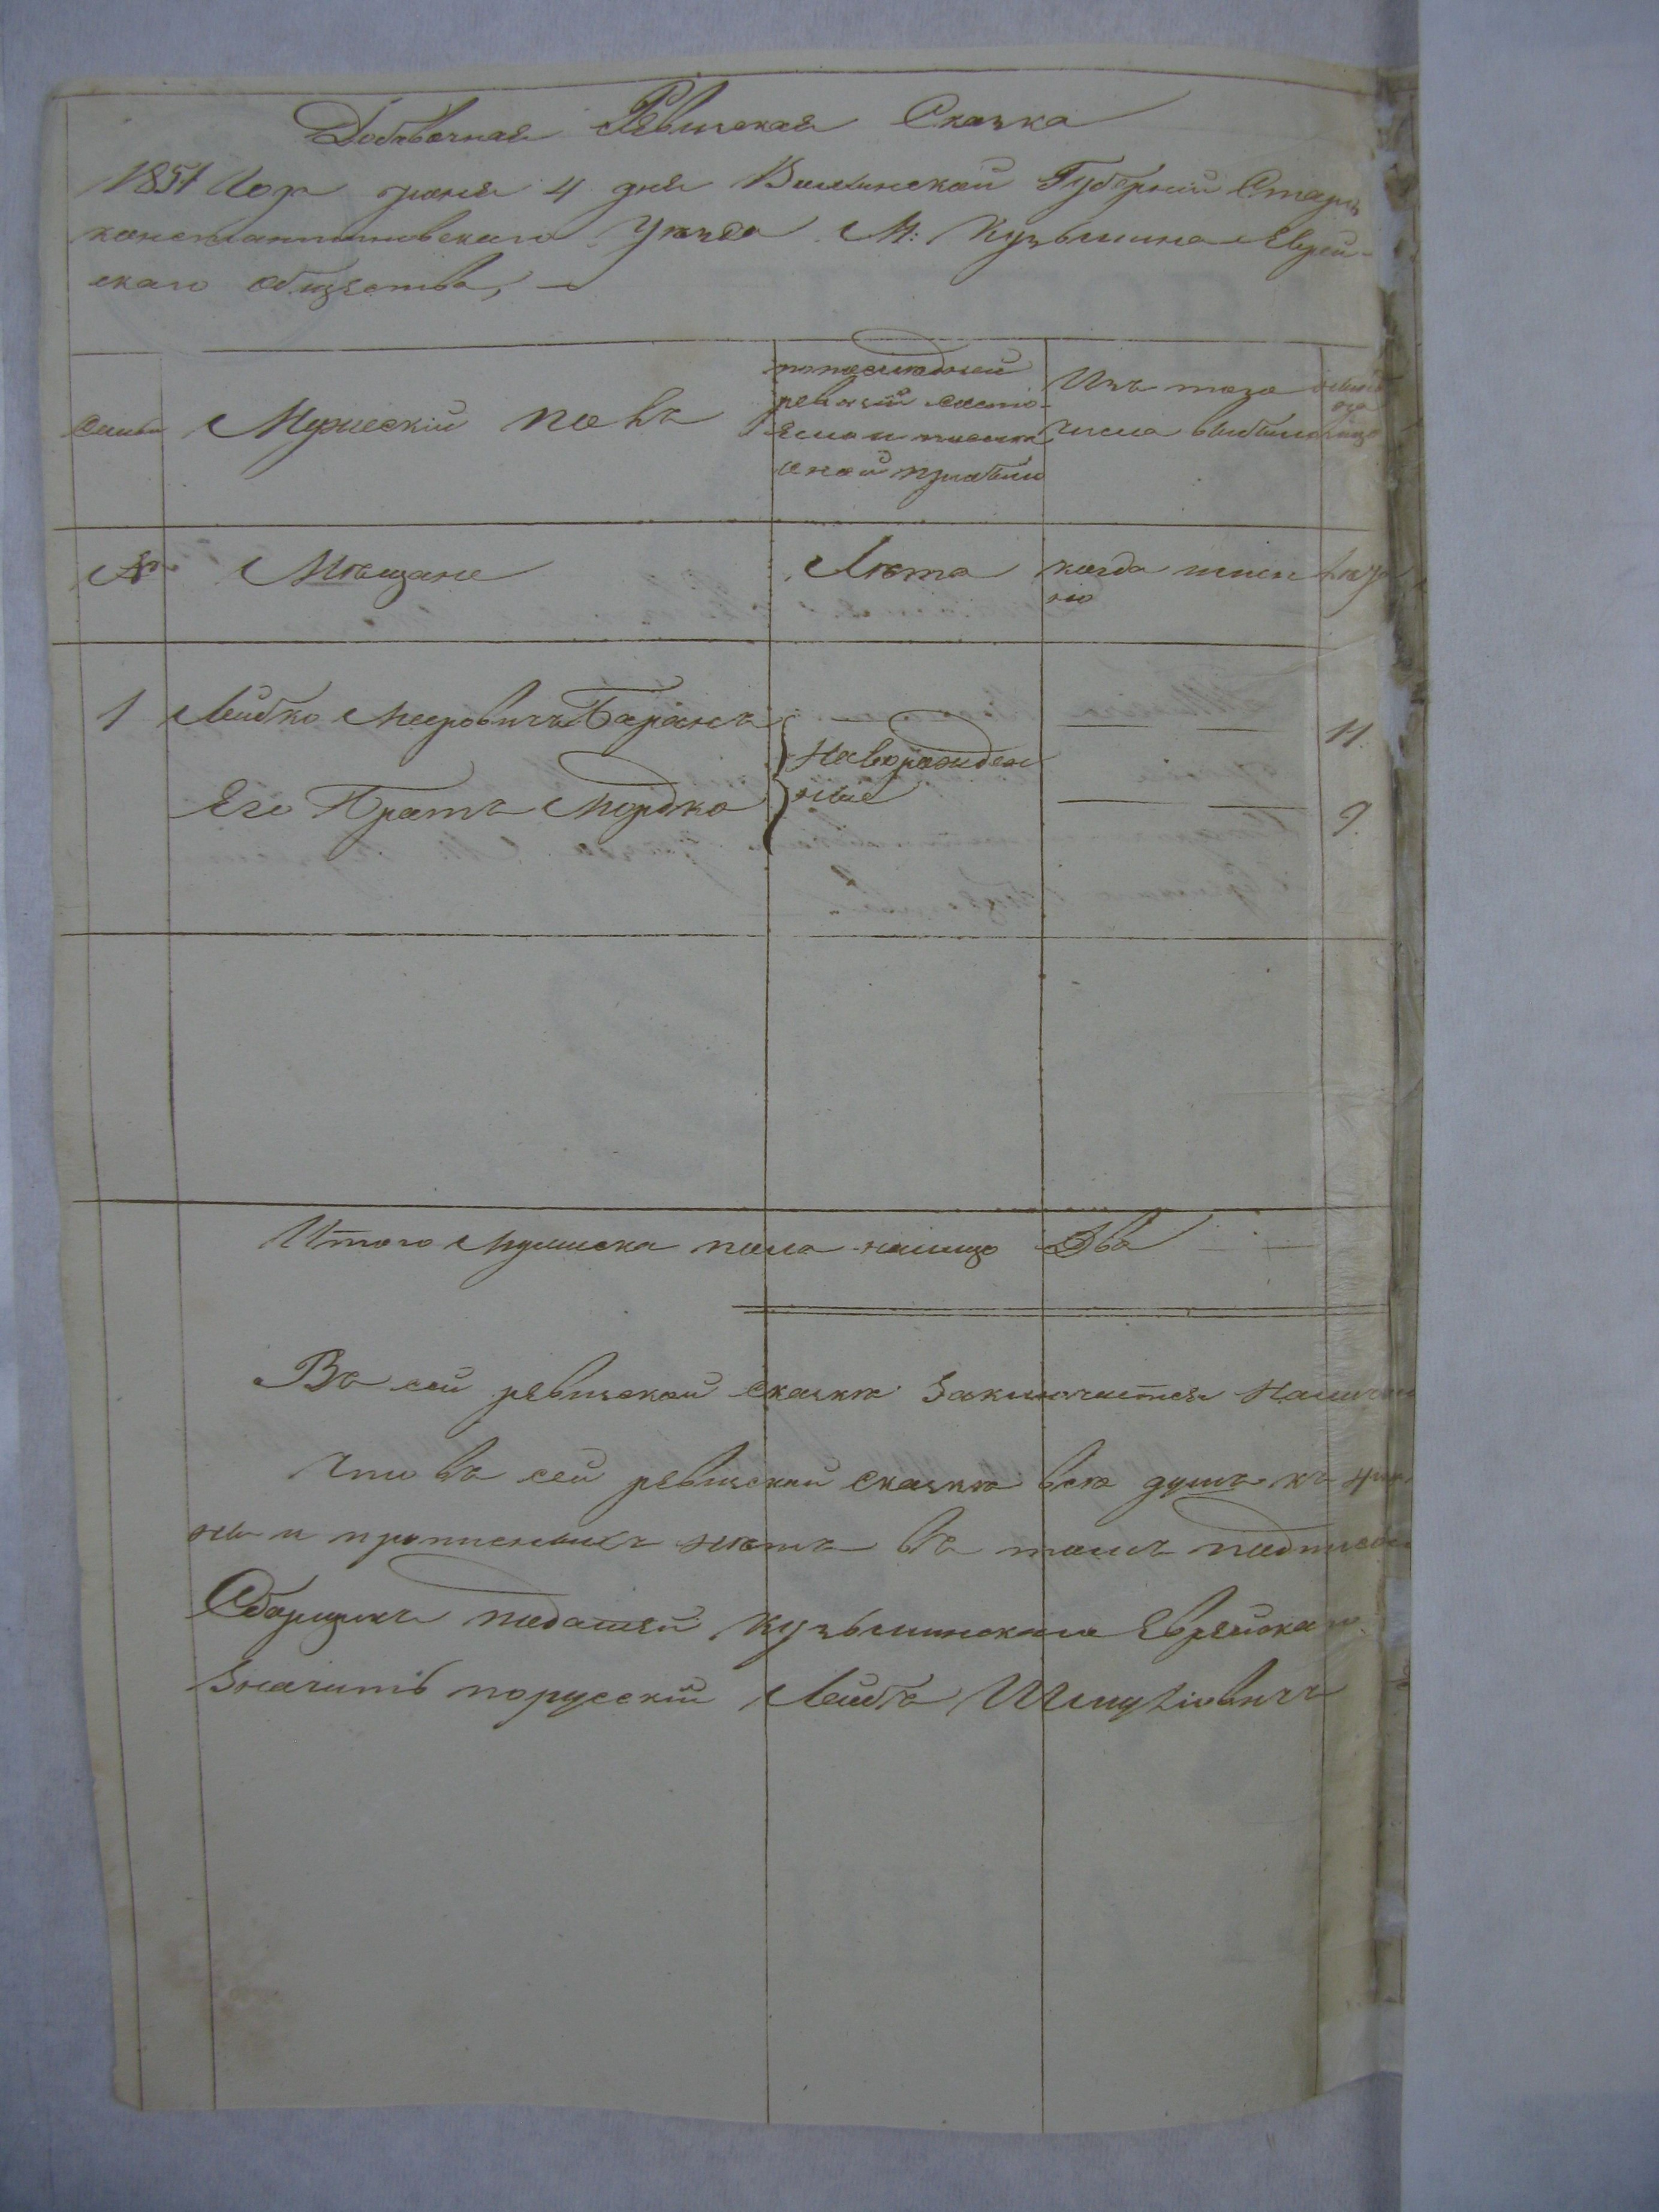 Добавочная Ревизская Сказка
1851 Года июня 4 дня Волынской Губерніи Старо
константиновскаго Уѣзда М: Кузьмина Еврей-
скаго общества,
Семьи
Мужескій полъ
по последней
ревизіи состо-
яло и после
оной прибыли
Изъ того
числа выбыло
№
Мѣщане
Лѣта
когда имен
но
Лѣта
1
Лейбко Мееровичъ Баранъ
11.
Его Братъ Мордко
9.
Новорожден
ные
Итого мужеска пола налицо Два
Въ сей ревизской сказкѣ Заключается Налич
что въ сей ревизской сказкѣ всѣ душъ къ
ны и прописныхъ нѣтъ въ томъ подписа
Сборщикъ податей Кузьминскаго Еврейскаго
Значитъ порусскій Лейба Шмулiовичъ